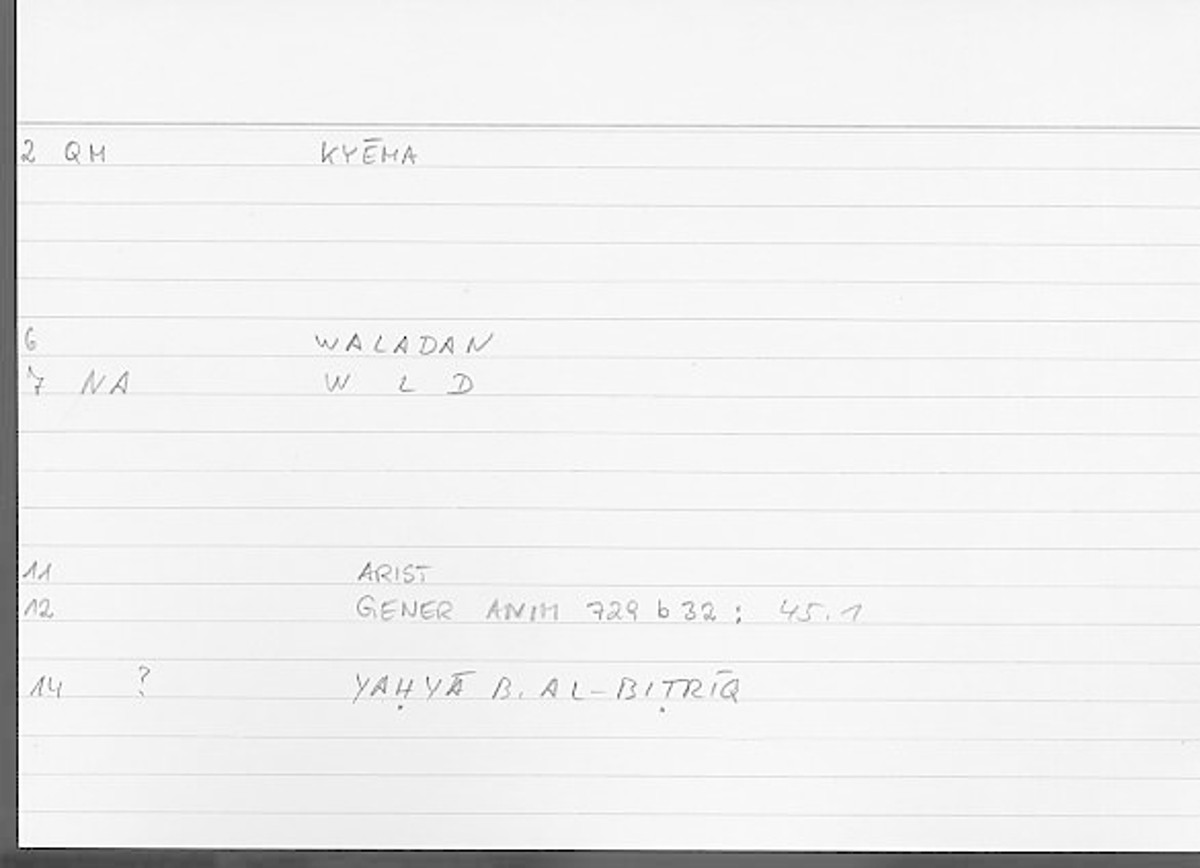 2 QM KYĒMA
6 WALADAN
7 NA W L D
11 ARIST
12 GENER ANIM 729 b 32 ; 45.1
14 ? YAḤYĀ B. AL-BIṬRĪQ